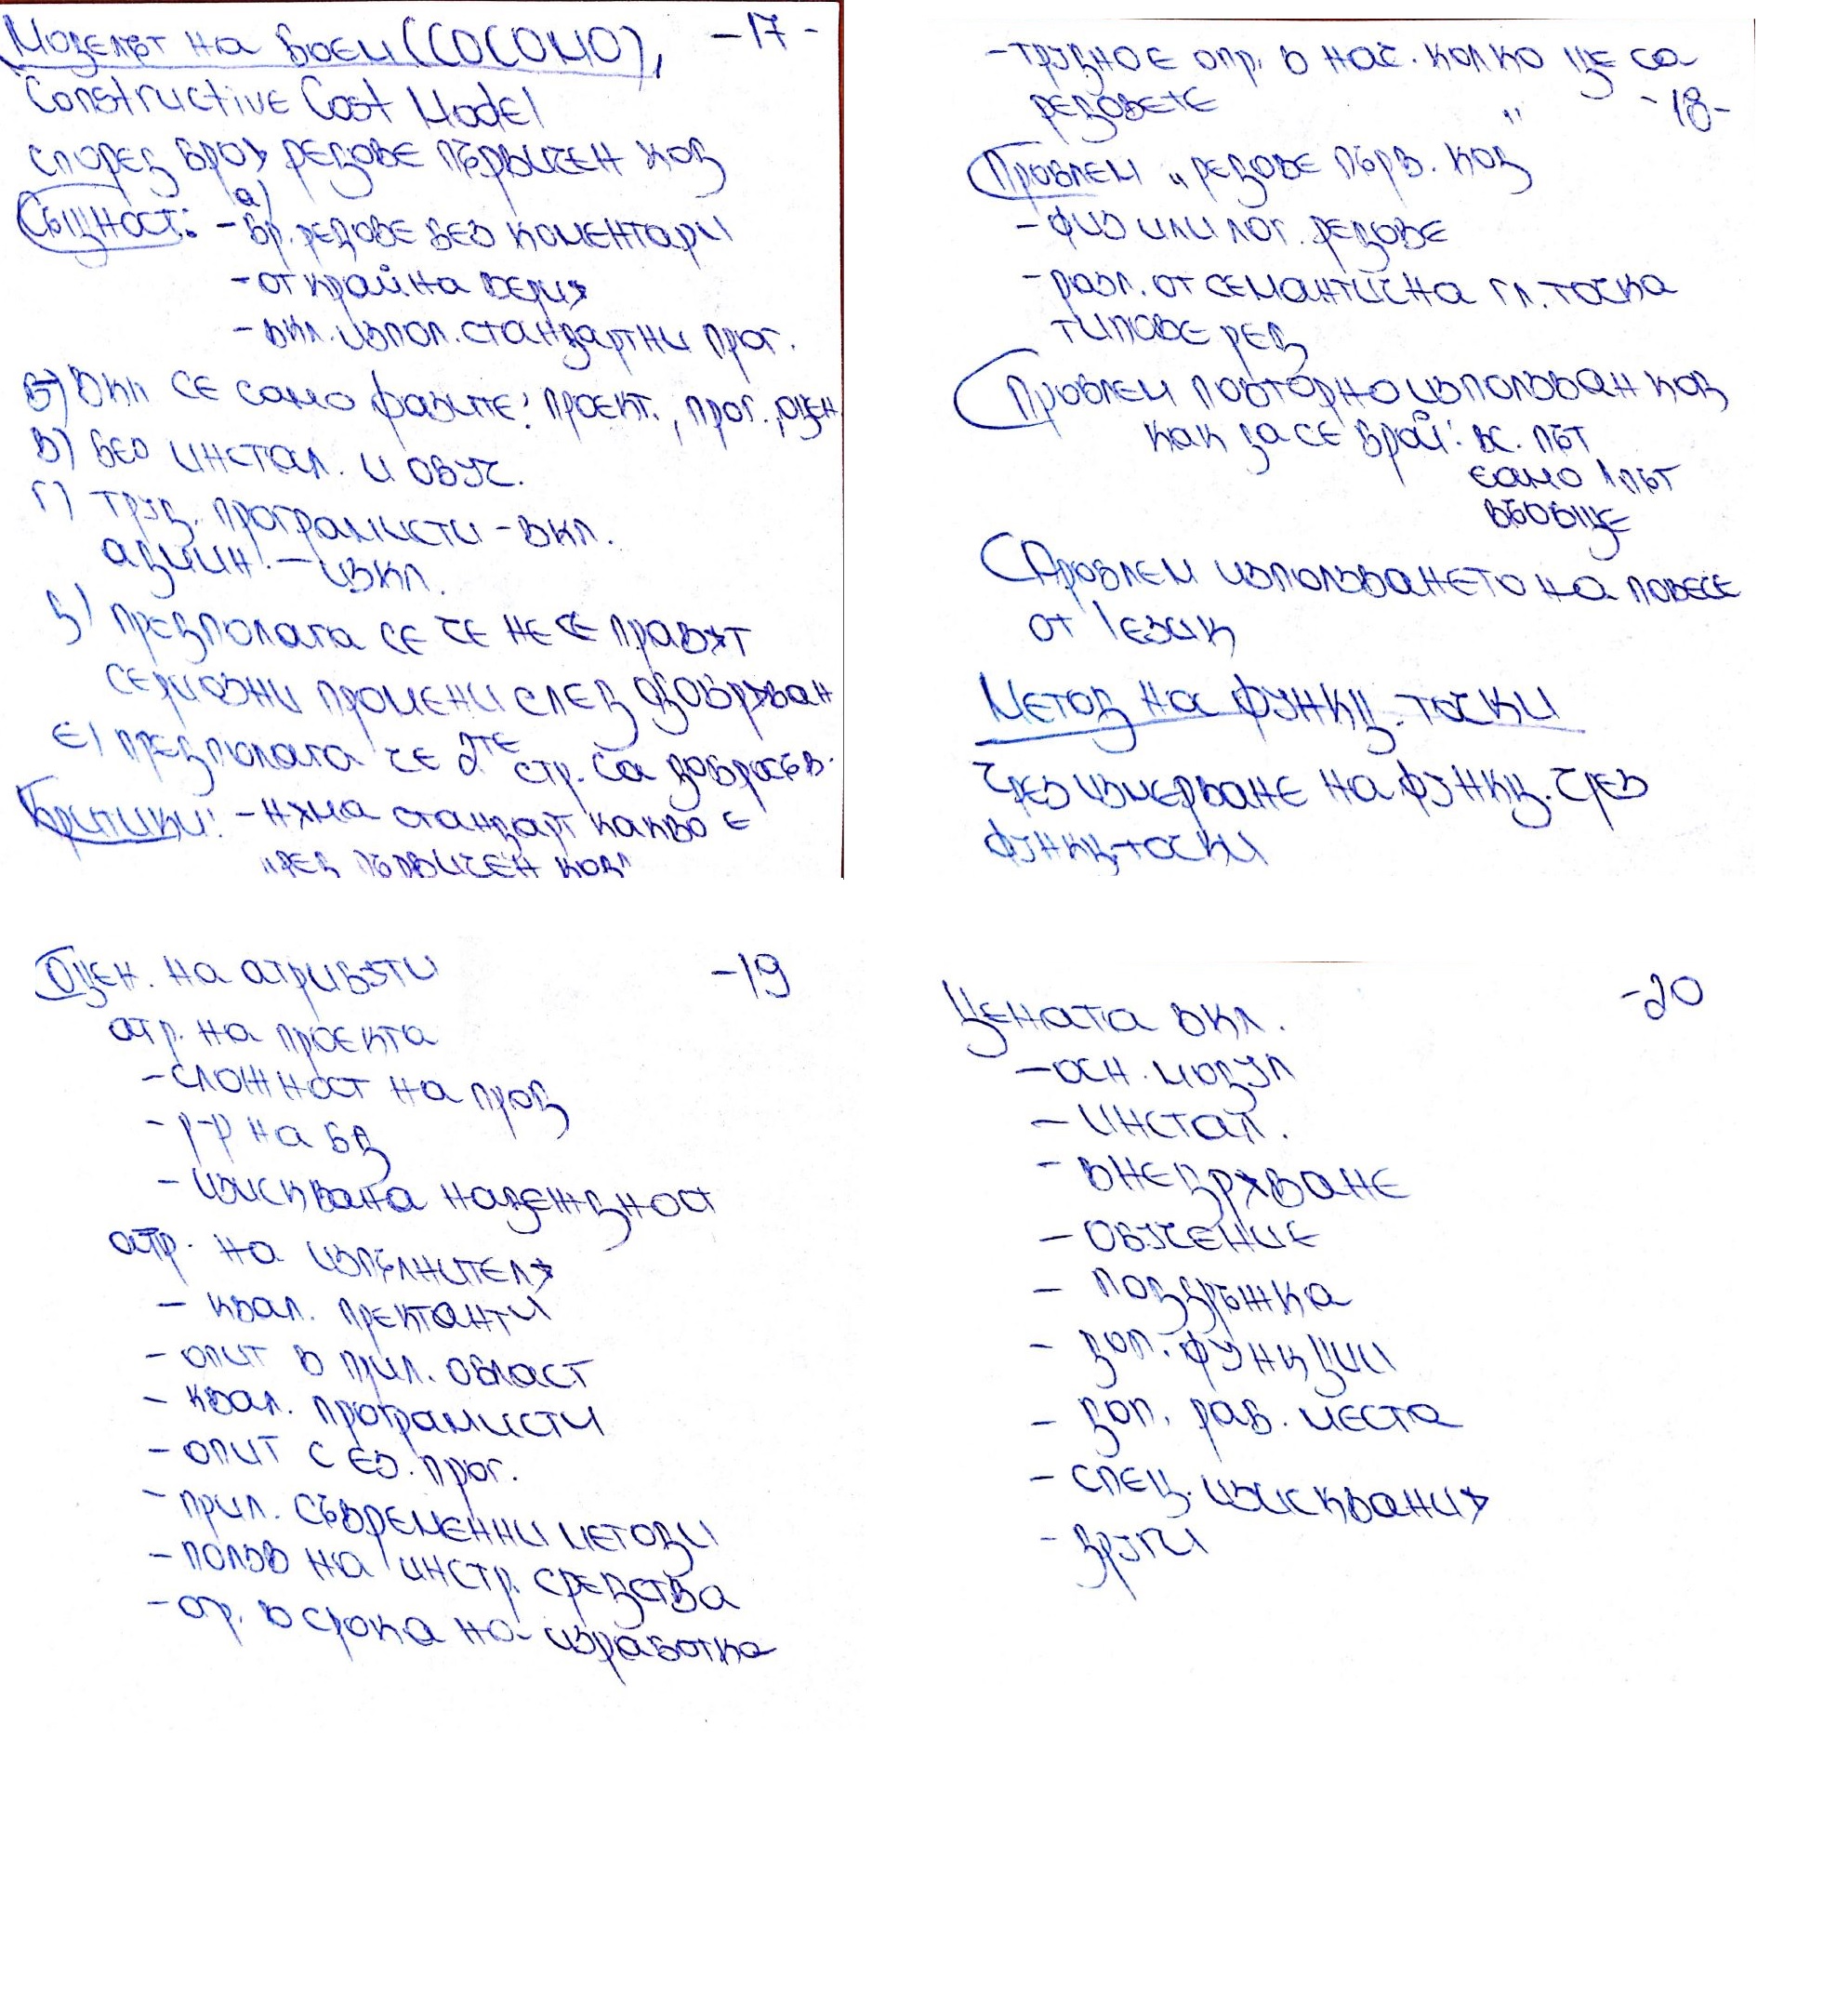 Моделът на Боем (COCOMO), -17-
Constructive Cost Model
според броя редове първичен код
Същност: а)
- бр. редове без коментари
- от крайна верия
- вкл. изпол. стандартни прог.
б) Вкл се само фазите: проект., прог., оцен
в) без инстал. и обуч.
г) труд. програмисти - вкл.
админ. - изкл.
д) предполага се че не се правят
сериозни промени след одобряван
е) предполага че 2те стр. са добросъв.
Критики: - няма стандарт какво е
"ред първичен код"
- трудно е опр. в нач. колко ще са
редовете -18-
Проблем „редове първ. код"
- физ или лог. редове
- разл. от семантична гл. точка
типове ред
Проблем повторно използван код
как да се брой: вс. път
само 1 път
въобще
Проблем използването на повече
от 1 език
Метод на функц. точки
чрез измерване на функц. чрез
функц-точки
Оцен. на атрибути -19
атр. на проекта
- сложност на прод
- р-р на БД
- изисквана надеждност
атр. на изпълнителя
- квал. пректанти
- опит в прил. област
- квал. програмисти
- опит с ез. прог.
- прил. съвременни методи
- полза на инстр. средства
- огр. в срока на изработка
Цената вкл. -20
- осн. модул
- инстал.
- внедряване
- обучение
- поддръжка
- доп. функции
- доп. раб. места
- спец. изисквания
- други